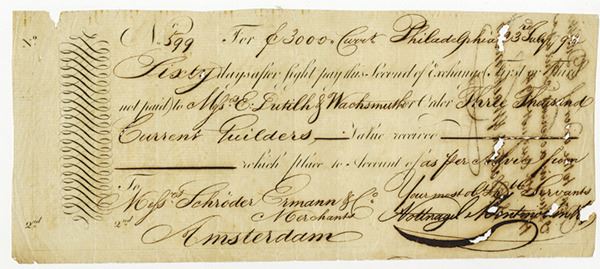 No
No 599 For ƒ 3000. Currt. Philadelphia 23 July 179
Sixty days after sight pay this Second of Exchange, First or Third
not paid) to Messrs E. Dutilh & Wachsmuth or Order Three Thousand
Current Guilders, Value receive
which place to Account of as per Advice from
To
Your most ob Servants
Messrs Schröder Ermann & Co.
Merchants
Hottinguer
2nd
2nd
Amsterdam